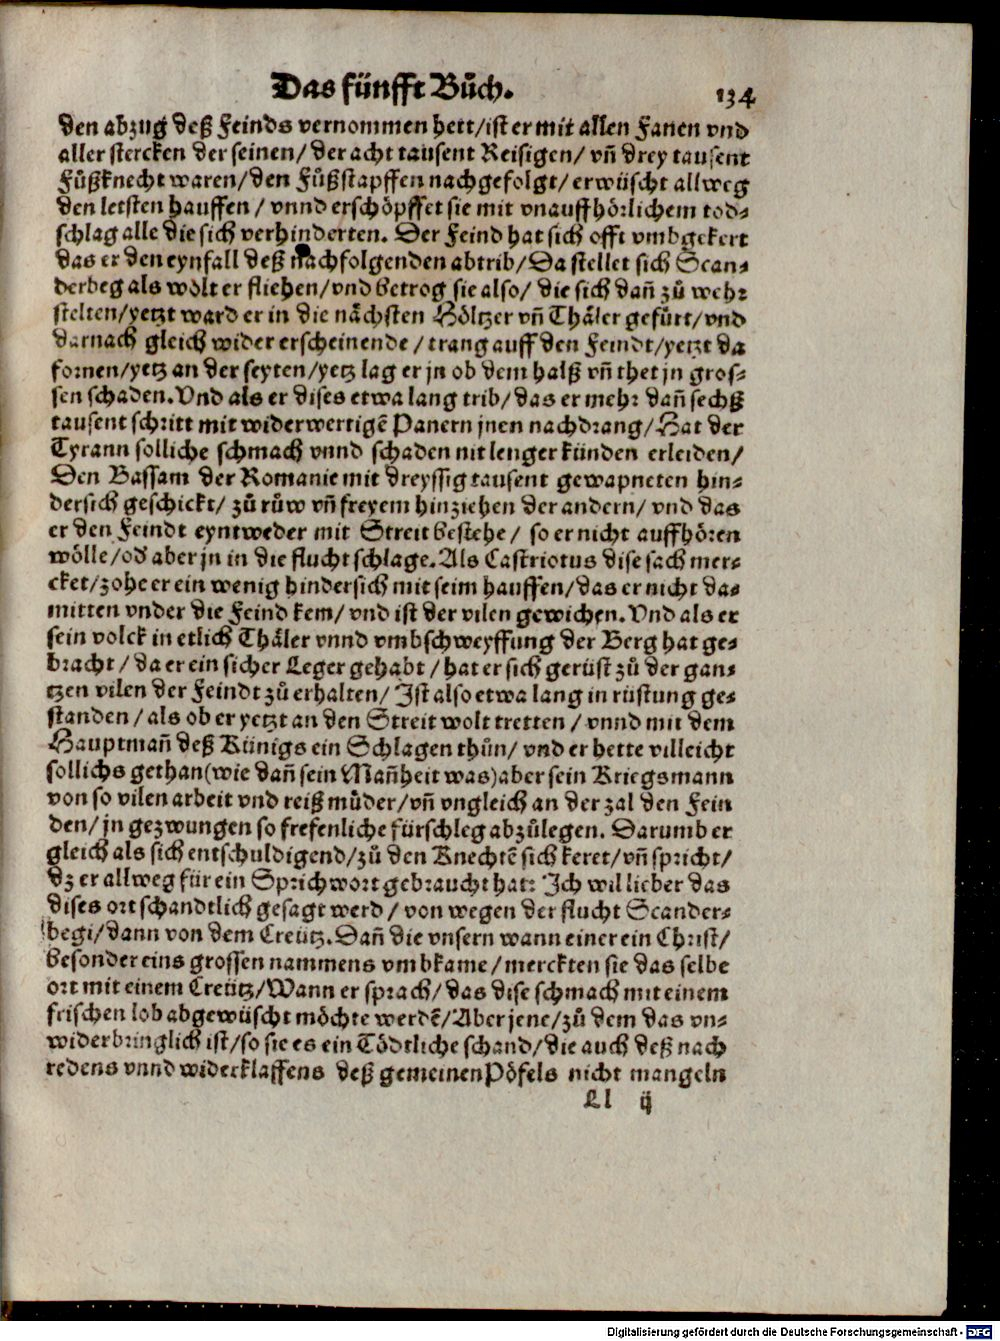 Das fünfft Bůch. 134
den abzug deß Feinds vernommen hett/ist er mit allen Fanen vnd
aller stercken der seinen/ der acht tausent Reisigen/ vñ drey tausent
Fůßknecht waren/den Fůßstapffen nachgefolgt/ erwüscht allweg
den letsten hauffen / vnnd erschöpffet sie mit vnauffhörlichem tod-
schlag alle die sich verhinderten. Der Feind hat sich offt vmbgekert
das er den eynfall deß nachfolgenden abtrib/ Da stellet sich Scan-
derbeg als wölt er fliehen/vnd betrog sie also/ die sich dañ zů wehr
stelten/yetzt ward er in die nächsten Höltzer vñ Thäler gefürt/vnd
darnach gleich wider erscheinende / trang auff den Feindt/yetzt da
fornen/yetz an der seyten/yetz lag er jn ob dem halß vñ thet jn gros-
sen schaden. Vnd als er dises etwa lang trib/das er mehr dañ sechß
tausent schritt mit widerwertigẽ Panern jnen nachdrang/ Hat der
Tyrann solliche schmach vnnd schaden nit lenger künden erleiden/
Den Bassam der Romanie mit dreyssig tausent gewapneten hin-
dersich geschickt/ zů růw vñ freyem hinziehen der andern/ vnd das
er den Feindt eyntweder mit Streit bestehe / so er nicht auffhören
wölle/od aber jn in die flucht schlage. Als Castriotus dise sach mer-
cket/zohe er ein wenig hindersich mit seim hauffen/das er nicht da-
mitten vnder die Feind kem/ vnd ist der vilen gewichen. Vnd als er
sein volck in etlich Thäler vnnd vmbschweyffung der Berg hat ge-
bracht / da er ein sicher Leger gehabt / hat er sich gerüst zů der gan-
tzen vilen der Feindt zů erhalten/ Ist also etwa lang in rüstung ge-
standen / als ob er yetzt an den Streit wolt tretten / vnnd mit dem
Hauptmañ deß Künigs ein Schlagen thůn/ vnd er hette villeicht
sollichs gethan(wie dañ sein Mañheit was)aber sein Kriegsmann
von so vilen arbeit vnd reiß můder/vñ vngleich an der zal den Fein
den/ jn gezwungen so frefenliche fürschleg abzůlegen. Darumb er
gleich als sich entschuldigend/zů den Knechtẽ sich keret/vñ spricht/
dz er allweg für ein Sprichwort gebraucht hat: Ich wil lieber das
dises ort schandtlich gesagt werd / von wegen der flucht Scander-
begi/dann von dem Creütz. Dañ die vnsern wann einer ein Christ/
besonder eins grossen nammens vmbkame/merckten sie das selbe
ort mit einem Creütz/Wann er sprach/das dise schmach mit einem
frischen lob abgewüscht möchte werdẽ/Aber jene/zů dem das vn-
widerbringlich ist/so sie es ein Tödtliche schand/die auch deß nach
redens vnnd widerklaffens deß gemeinen Pöfels nicht mangeln
Ll ij
Digitalisierung gefördert durch die Deutsche Forschungsgemeinschaft - DFG